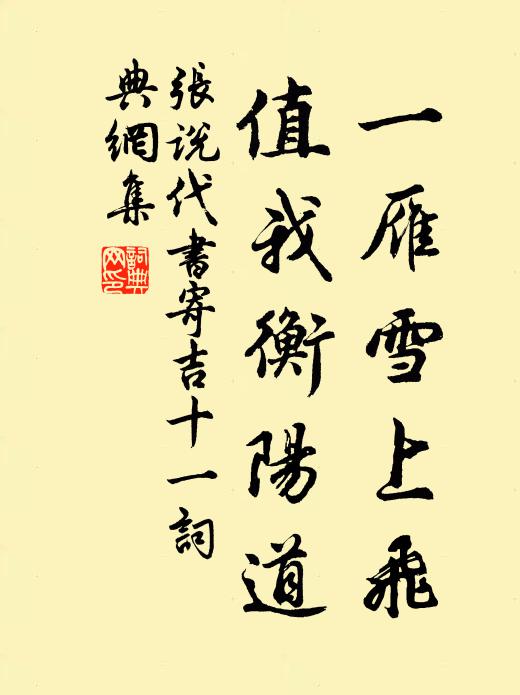 一雁雪上飛
值我衡陽道
張説代書寄吉十一詞
典網集
詞典
网印